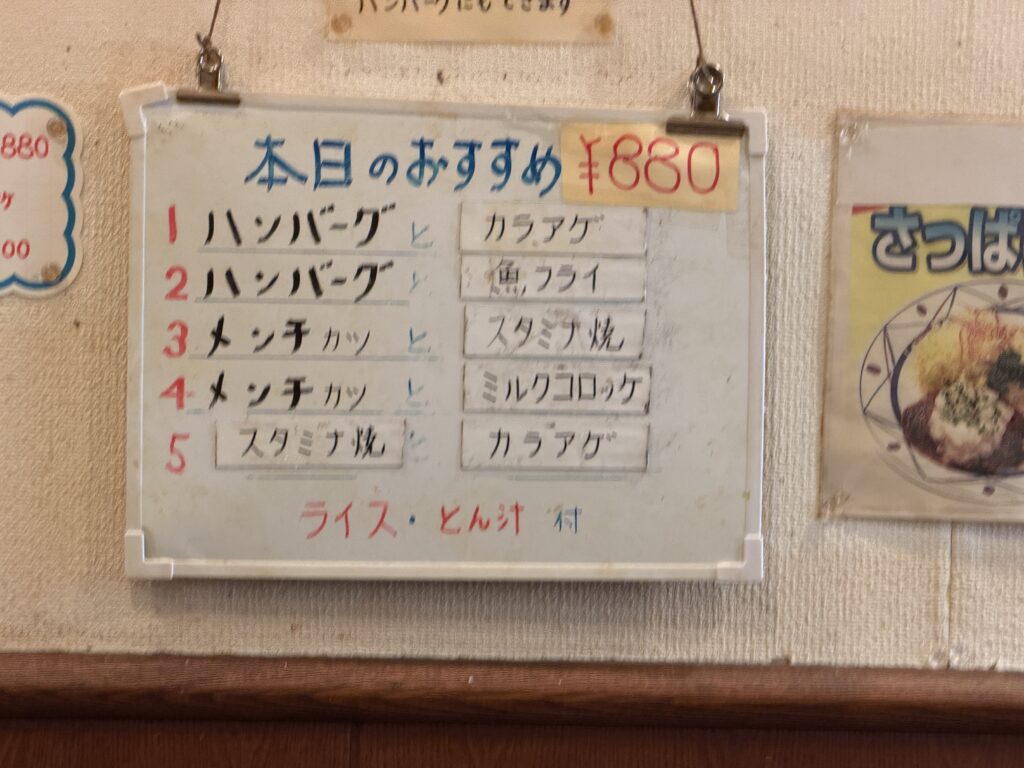 ハンバーグにもできます
880
ケ
00
本日のおすすめ ¥880
1 ハンバーグ と カラアゲ
2 ハンバーグ と 魚フライ
3 メンチカツ と スタミナ焼
4 メンチカツ と ミルクコロッケ
5 スタミナ焼 と カラアゲ
ライス・とん汁 付
さっぱ